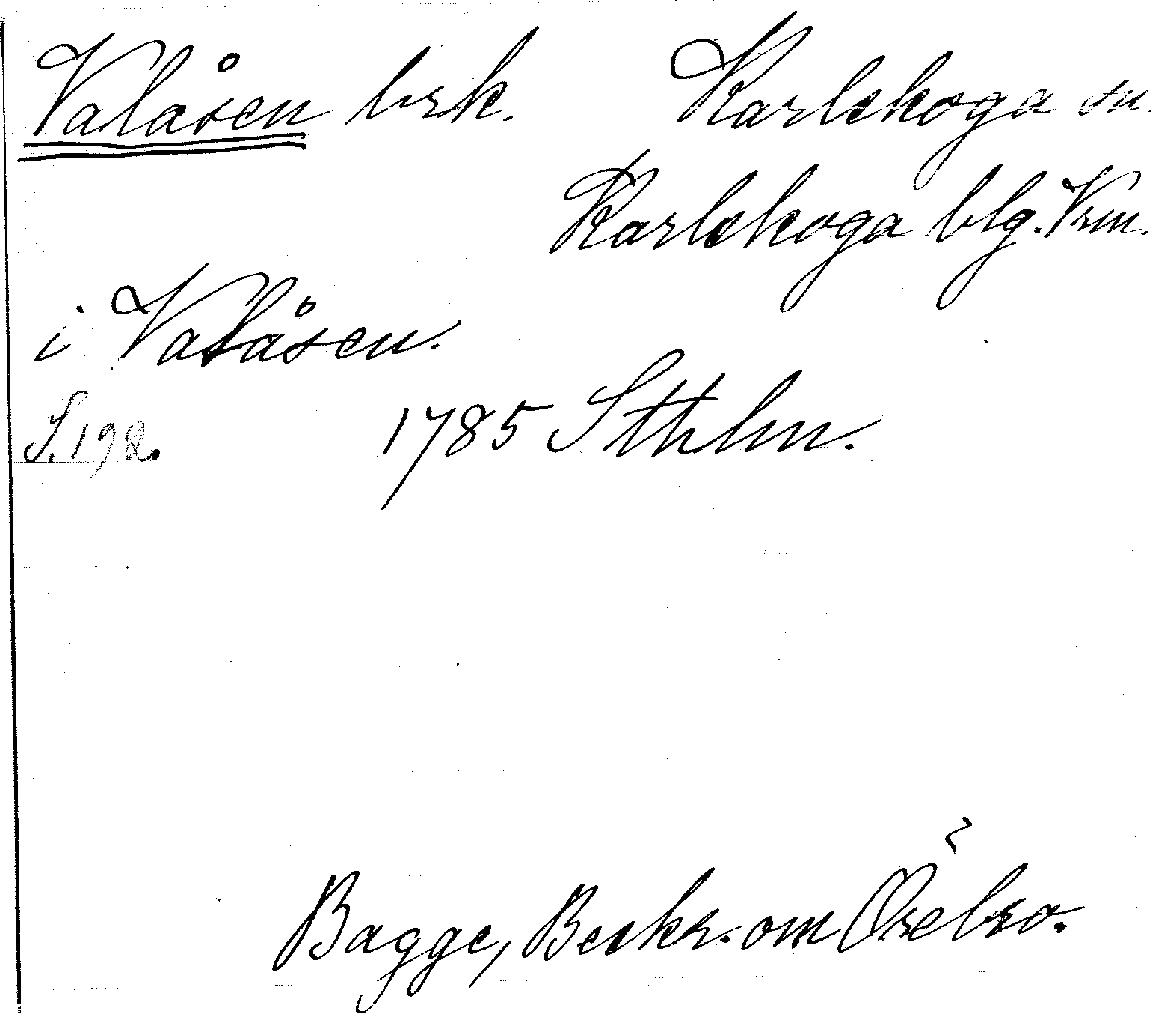 Valåsen brk. Karlskoga sn.
Karlskoga blg. Vrm.
i Valåsen.
S. 198. 1785 Sthlm.
Bagge, Beskr. om Örebro.